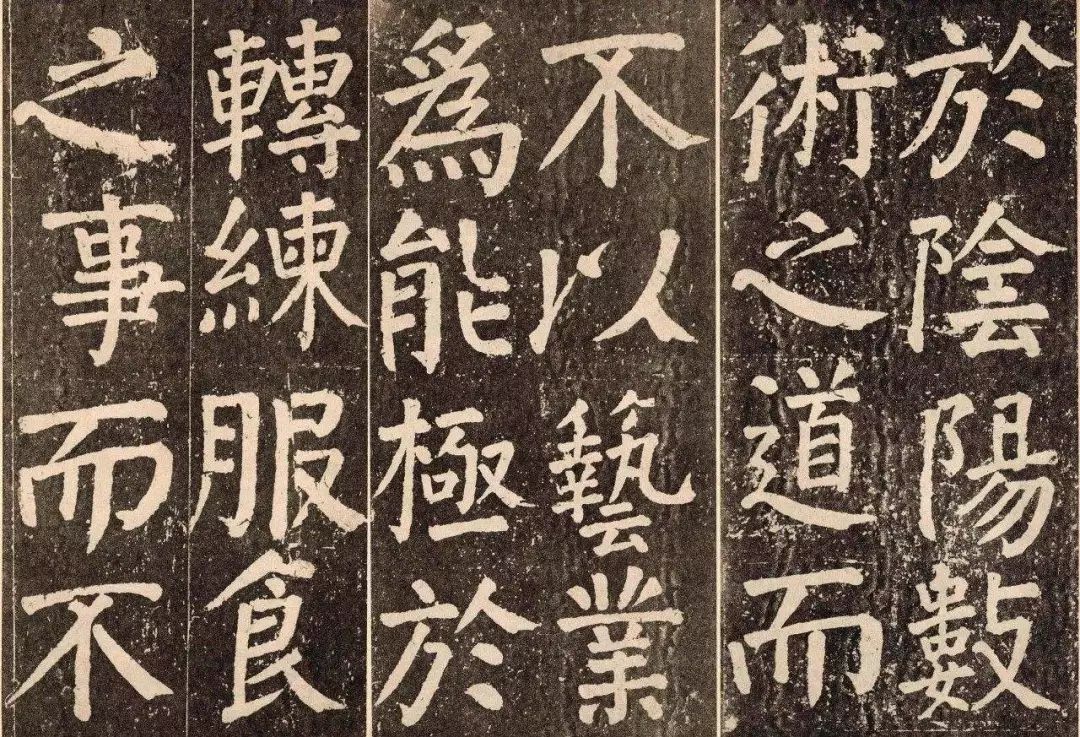 於陰陽數
術之道而
不以藝業
為能極於
轉練服食
之事而不